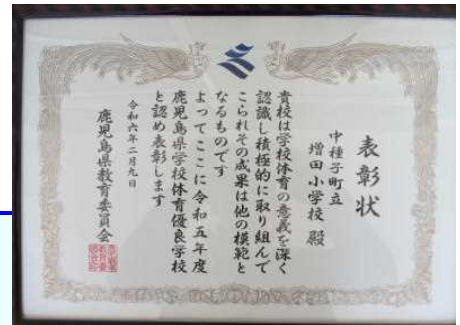 表彰状
中種子町立
増田小学校 殿
貴校は学校体育の意義を深く
認識し積極的に取り組んで
こられその成果は他の模範と
なるものです
よってここに令和五年度
鹿児島県学校体育優良学校
と認め表彰します
令和六年二月九日
鹿児島県教育委員会